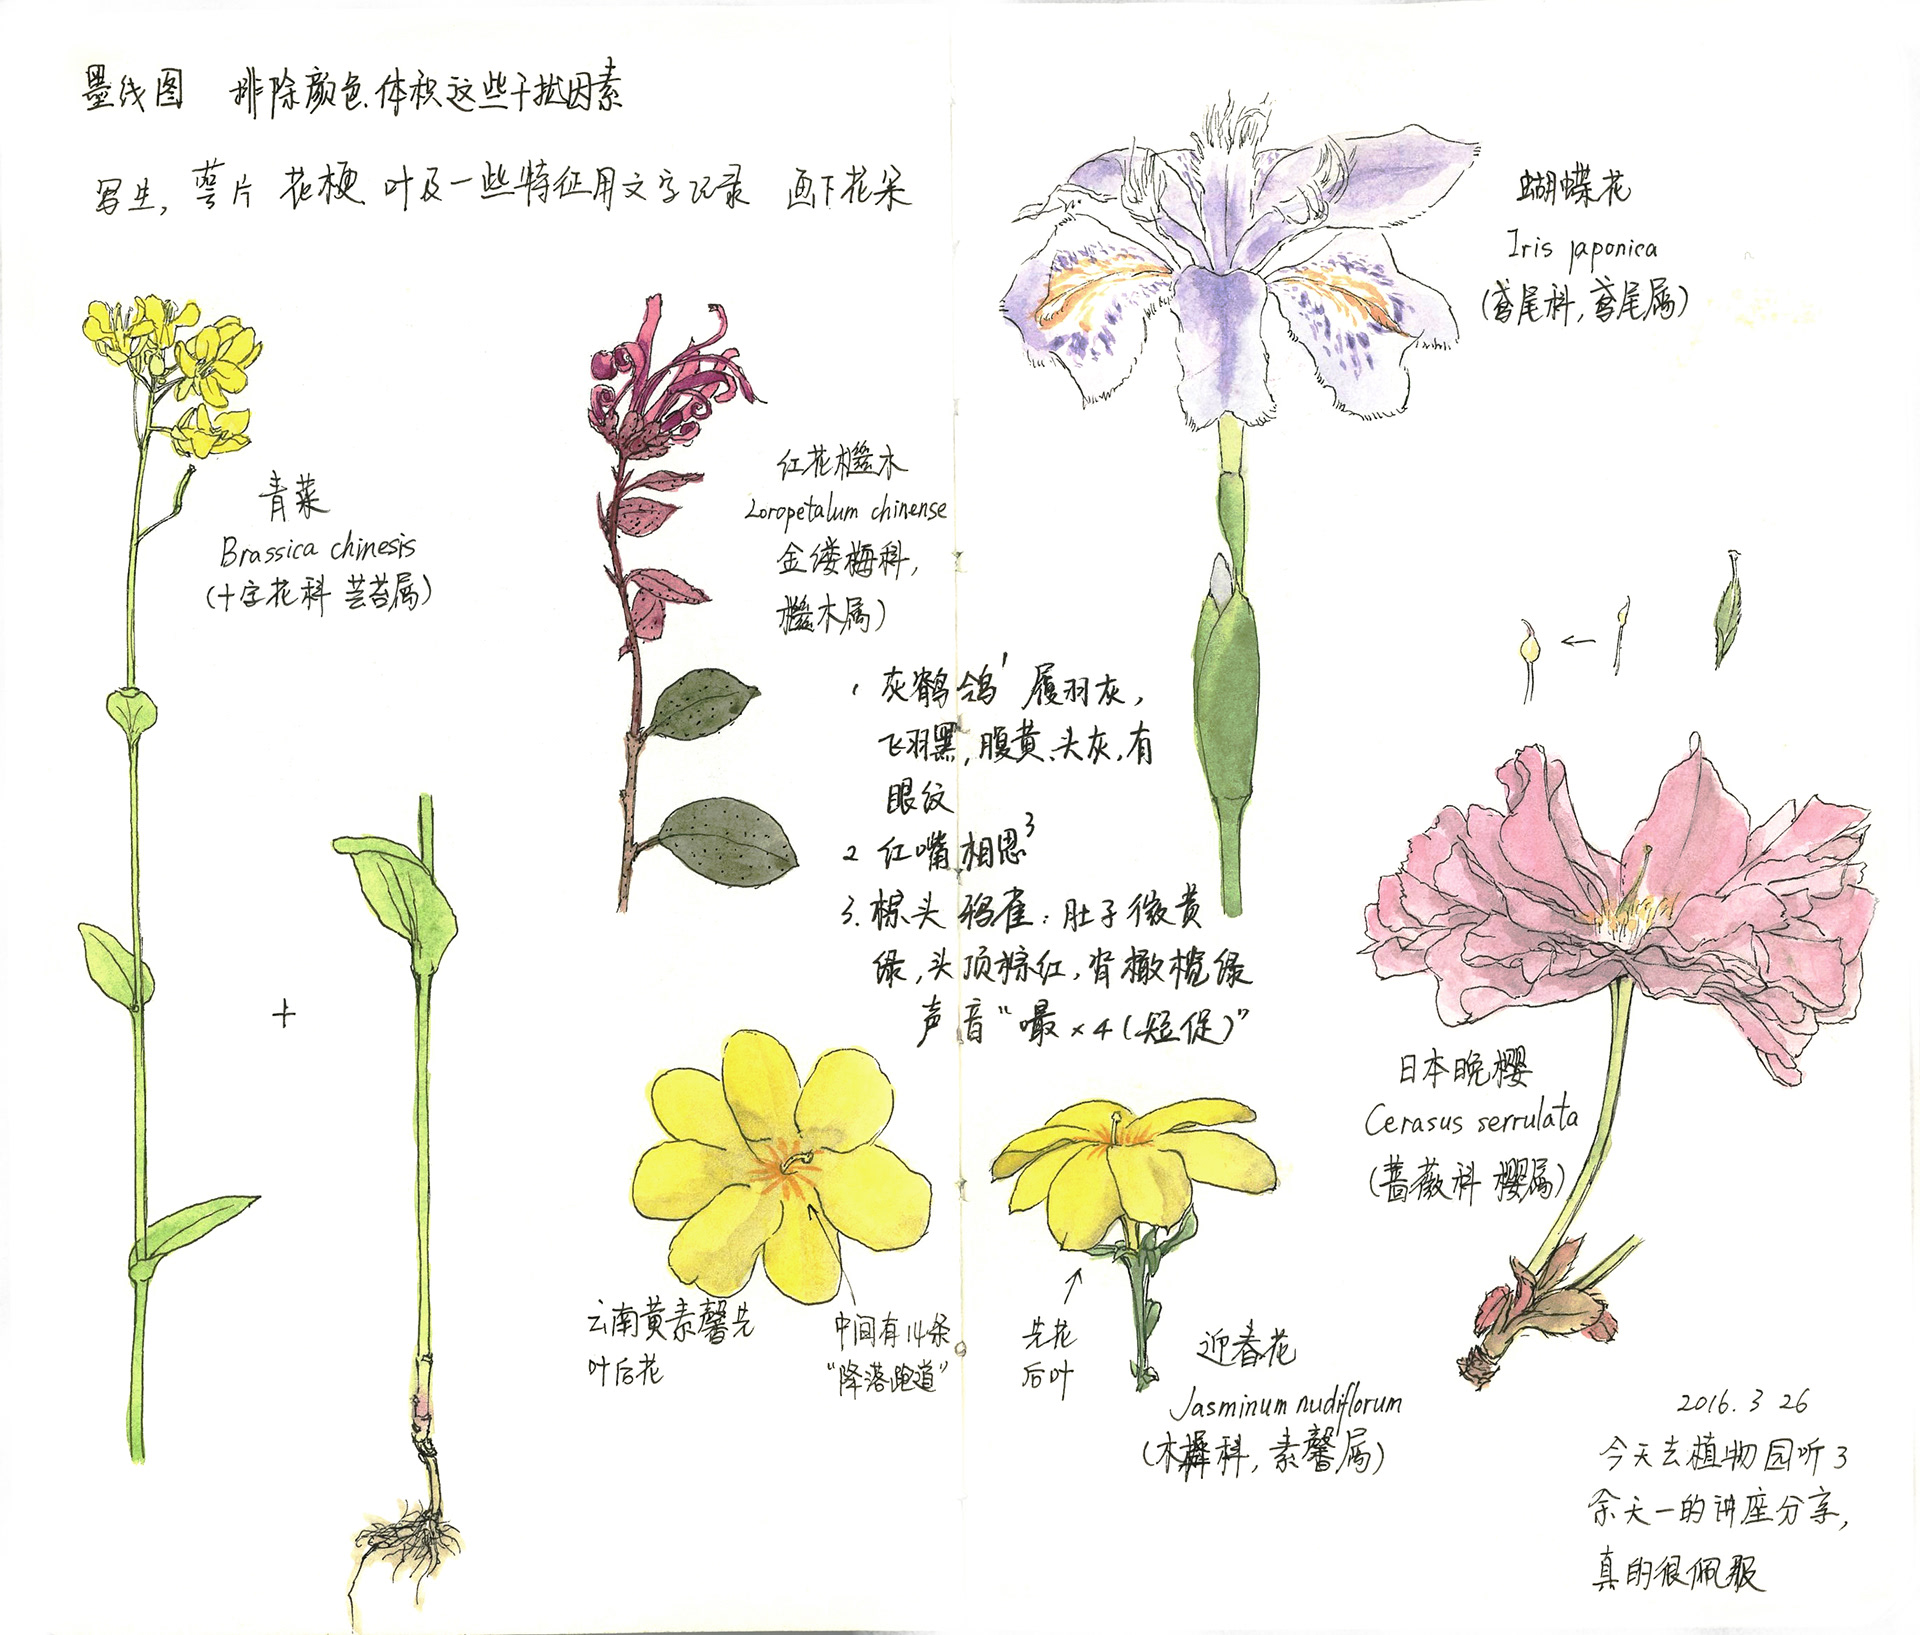 墨线图 排除颜色、体积这些干扰因素
写生，萼片 花梗 叶及一些特征用文字记录 画下花朵
青菜
Brassica chinesis
(十字花科 芸苔属)
红花檵木
Loropetalum chinense
金缕梅科，
檵木属)
蝴蝶花
Iris japonica
(鸢尾科，鸢尾属)
1 灰鹡鸰1 履羽灰，
飞羽黑，腹黄、头灰，有
眼纹
2 红嘴相思3
3. 棕头鸦雀：肚子微黄
绿，头顶棕红，背橄榄绿
声音“嘬×4(短促)”
云南黄素馨先
叶后花
中间有14条
“降落跑道”
先花
后叶
迎春花
Jasminum nudiflorum
(木樨科，素馨属)
日本晚樱
Cerasus serrulata
(蔷薇科 樱属)
2016. 3 26
今天去植物园听了
余天一的讲座分享，
真的很佩服